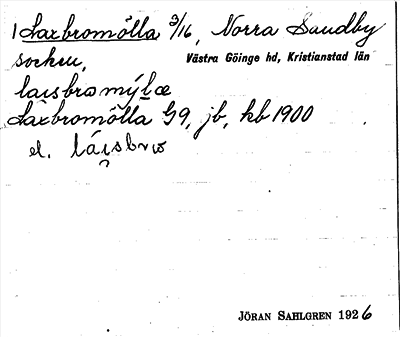 1 Laxbromölla 3/16, Norra Sandby
socken, Västra Göinge hd, Kristianstad län
laisbromýlæ
Laxbromölla G9, jb, kb 1900
el. láisbro
JÖRAN SAHLGREN 1926